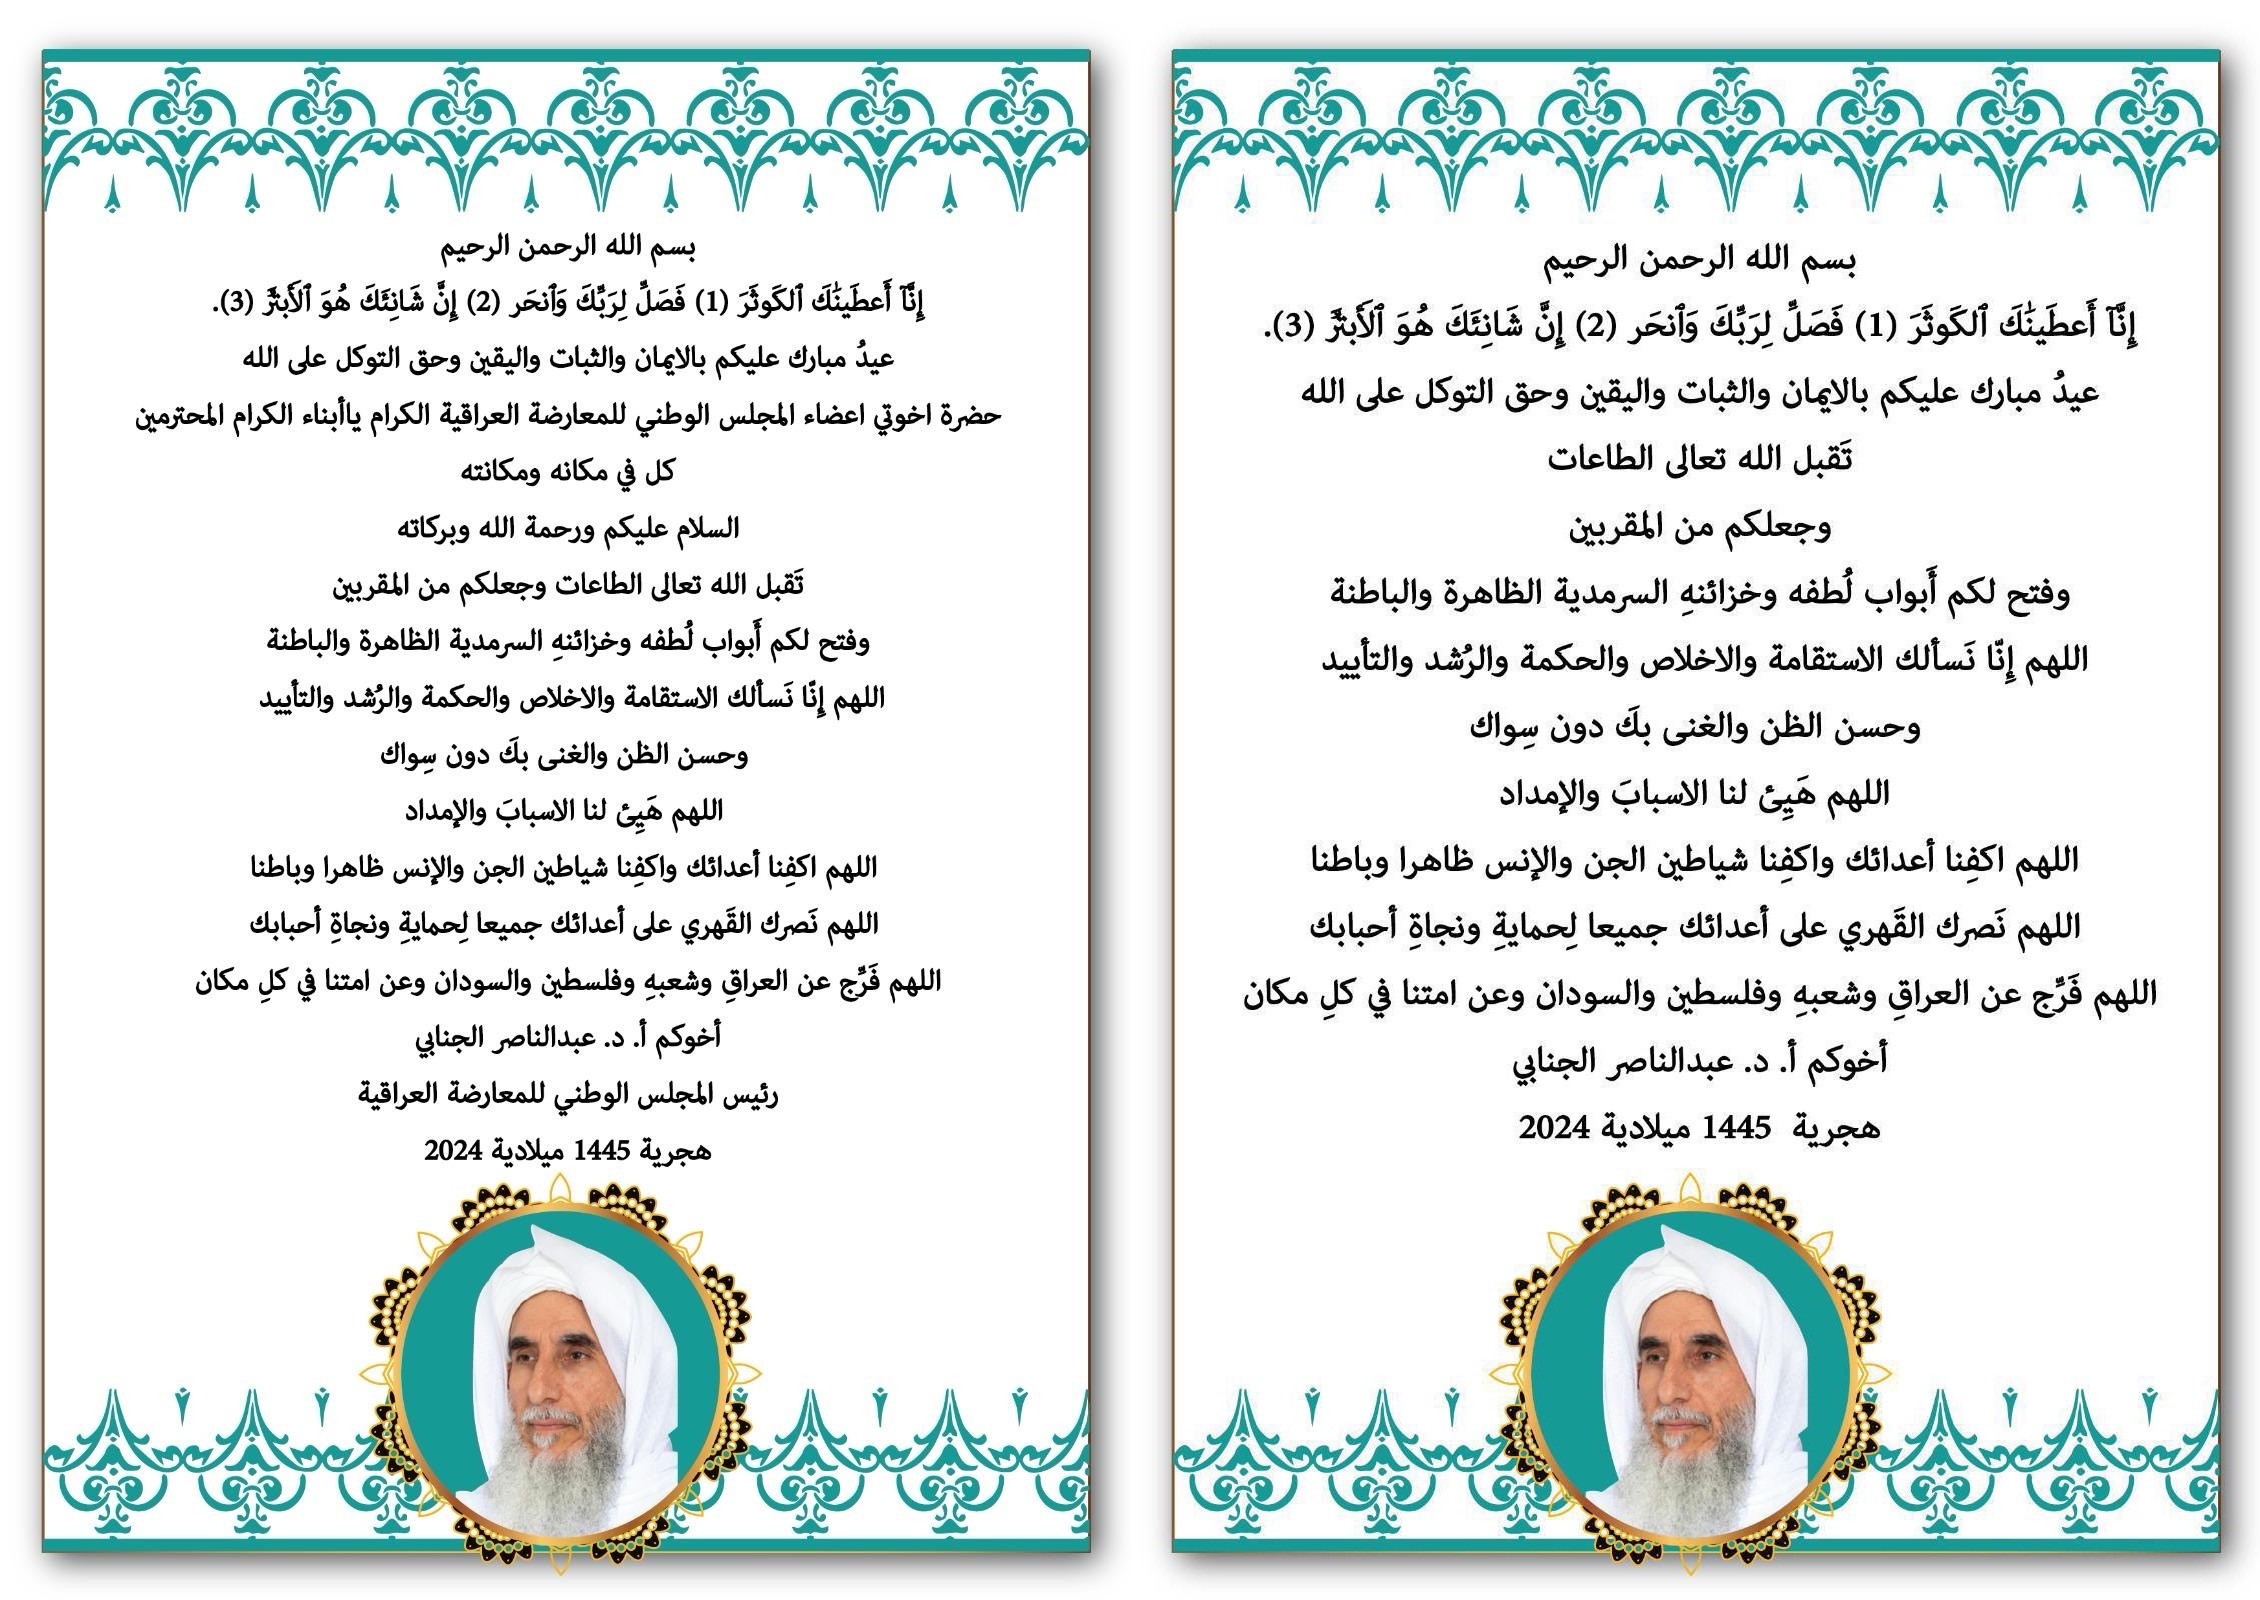 بسم الله الرحمن الرحيم
إِنَّآ أَعطَينَٰكَ ٱلكَوثَرَ (1) فَصَلِّ لِرَبِّكَ وَٱنحَر (2) إِنَّ شَانِئَكَ هُوَ ٱلأَبتَرُ (3).
عيدُ مبارك عليكم بالايمان والثبات واليقين وحق التوكل على الله
حضرة اخوتي اعضاء المجلس الوطني للمعارضة العراقية الكرام ياأبناء الكرام المحترمين
كل في مكانه ومكانته
السلام عليكم ورحمة الله وبركاته
تَقبل الله تعالى الطاعات وجعلكم من المقربين
وفتح لكم أَبواب لُطفه وخزائنهِ السرمدية الظاهرة والباطنة
اللهم إِنّا نَسألك الاستقامة والاخلاص والحكمة والرُشد والتأييد
وحسن الظن والغنى بكَ دون سِواك
اللهم هَيِئ لنا الاسبابَ والإمداد
اللهم اكفِنا أعدائك واكفِنا شياطين الجن والإنس ظاهرا وباطنا
اللهم نَصرك القَهري على أعدائك جميعا لِحمايةِ ونجاةِ أحبابك
اللهم فَرِّج عن العراقِ وشعبهِ وفلسطين والسودان وعن امتنا في كلِ مكان
أخوكم أ. د. عبدالناصر الجنابي
رئيس المجلس الوطني للمعارضة العراقية
هجرية 1445 ميلادية 2024
بسم الله الرحمن الرحيم
إِنَّآ أَعطَينَٰكَ ٱلكَوثَرَ (1) فَصَلِّ لِرَبِّكَ وَٱنحَر (2) إِنَّ شَانِئَكَ هُوَ ٱلأَبتَرُ (3).
عيدُ مبارك عليكم بالايمان والثبات واليقين وحق التوكل على الله
تَقبل الله تعالى الطاعات
وجعلكم من المقربين
وفتح لكم أَبواب لُطفه وخزائنهِ السرمدية الظاهرة والباطنة
اللهم إِنّا نَسألك الاستقامة والاخلاص والحكمة والرُشد والتأييد
وحسن الظن والغنى بكَ دون سِواك
اللهم هَيِئ لنا الاسبابَ والإمداد
اللهم اكفِنا أعدائك واكفِنا شياطين الجن والإنس ظاهرا وباطنا
اللهم نَصرك القَهري على أعدائك جميعا لِحمايةِ ونجاةِ أحبابك
اللهم فَرِّج عن العراقِ وشعبهِ وفلسطين والسودان وعن امتنا في كلِ مكان
أخوكم أ. د. عبدالناصر الجنابي
هجرية 1445 ميلادية 2024